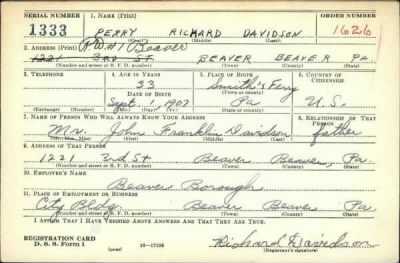 SERIAL NUMBER 1. NAME (Print) ORDER NUMBER
1333 PERRY RICHARD DAVIDSON 1626
(First) (Middle) (Last)
2. ADDRESS (Print) R.D.#1 Beaver
1221 3RD ST. BEAVER BEAVER PA.
(Number and street or R. F. D. number) (Town) (County) (State)
3. TELEPHONE 4. AGE IN YEARS 5. PLACE OF BIRTH 6. COUNTRY OF CITIZENSHIP
33 Smith's Ferry
DATE OF BIRTH (Town or county)
Sept 1 1907 Pa U.S.
(Exchange) (Number) (Mo.) (Day) (Yr.) (State or country)
7. NAME OF PERSON WHO WILL ALWAYS KNOW YOUR ADDRESS 8. RELATIONSHIP OF THAT PERSON
Mr. John Franklin Davidson father
(Mr., Mrs., Miss) (First) (Middle) (Last)
9. ADDRESS OF THAT PERSON
1221 3rd St Beaver Beaver, Pa.
(Number and street or R. F. D. number) (Town) (County) (State)
10. EMPLOYER'S NAME
Beaver Borough
11. PLACE OF EMPLOYMENT OR BUSINESS
City Bldg. Beaver Beaver. Pa.
(Number and street or R. F. D. number) (Town) (County) (State)
I AFFIRM THAT I HAVE VERIFIED ABOVE ANSWERS AND THAT THEY ARE TRUE.
REGISTRATION CARD
D. S. S. Form 1 (over) 16-17105 Richard Davidson
(Registrant's signature)